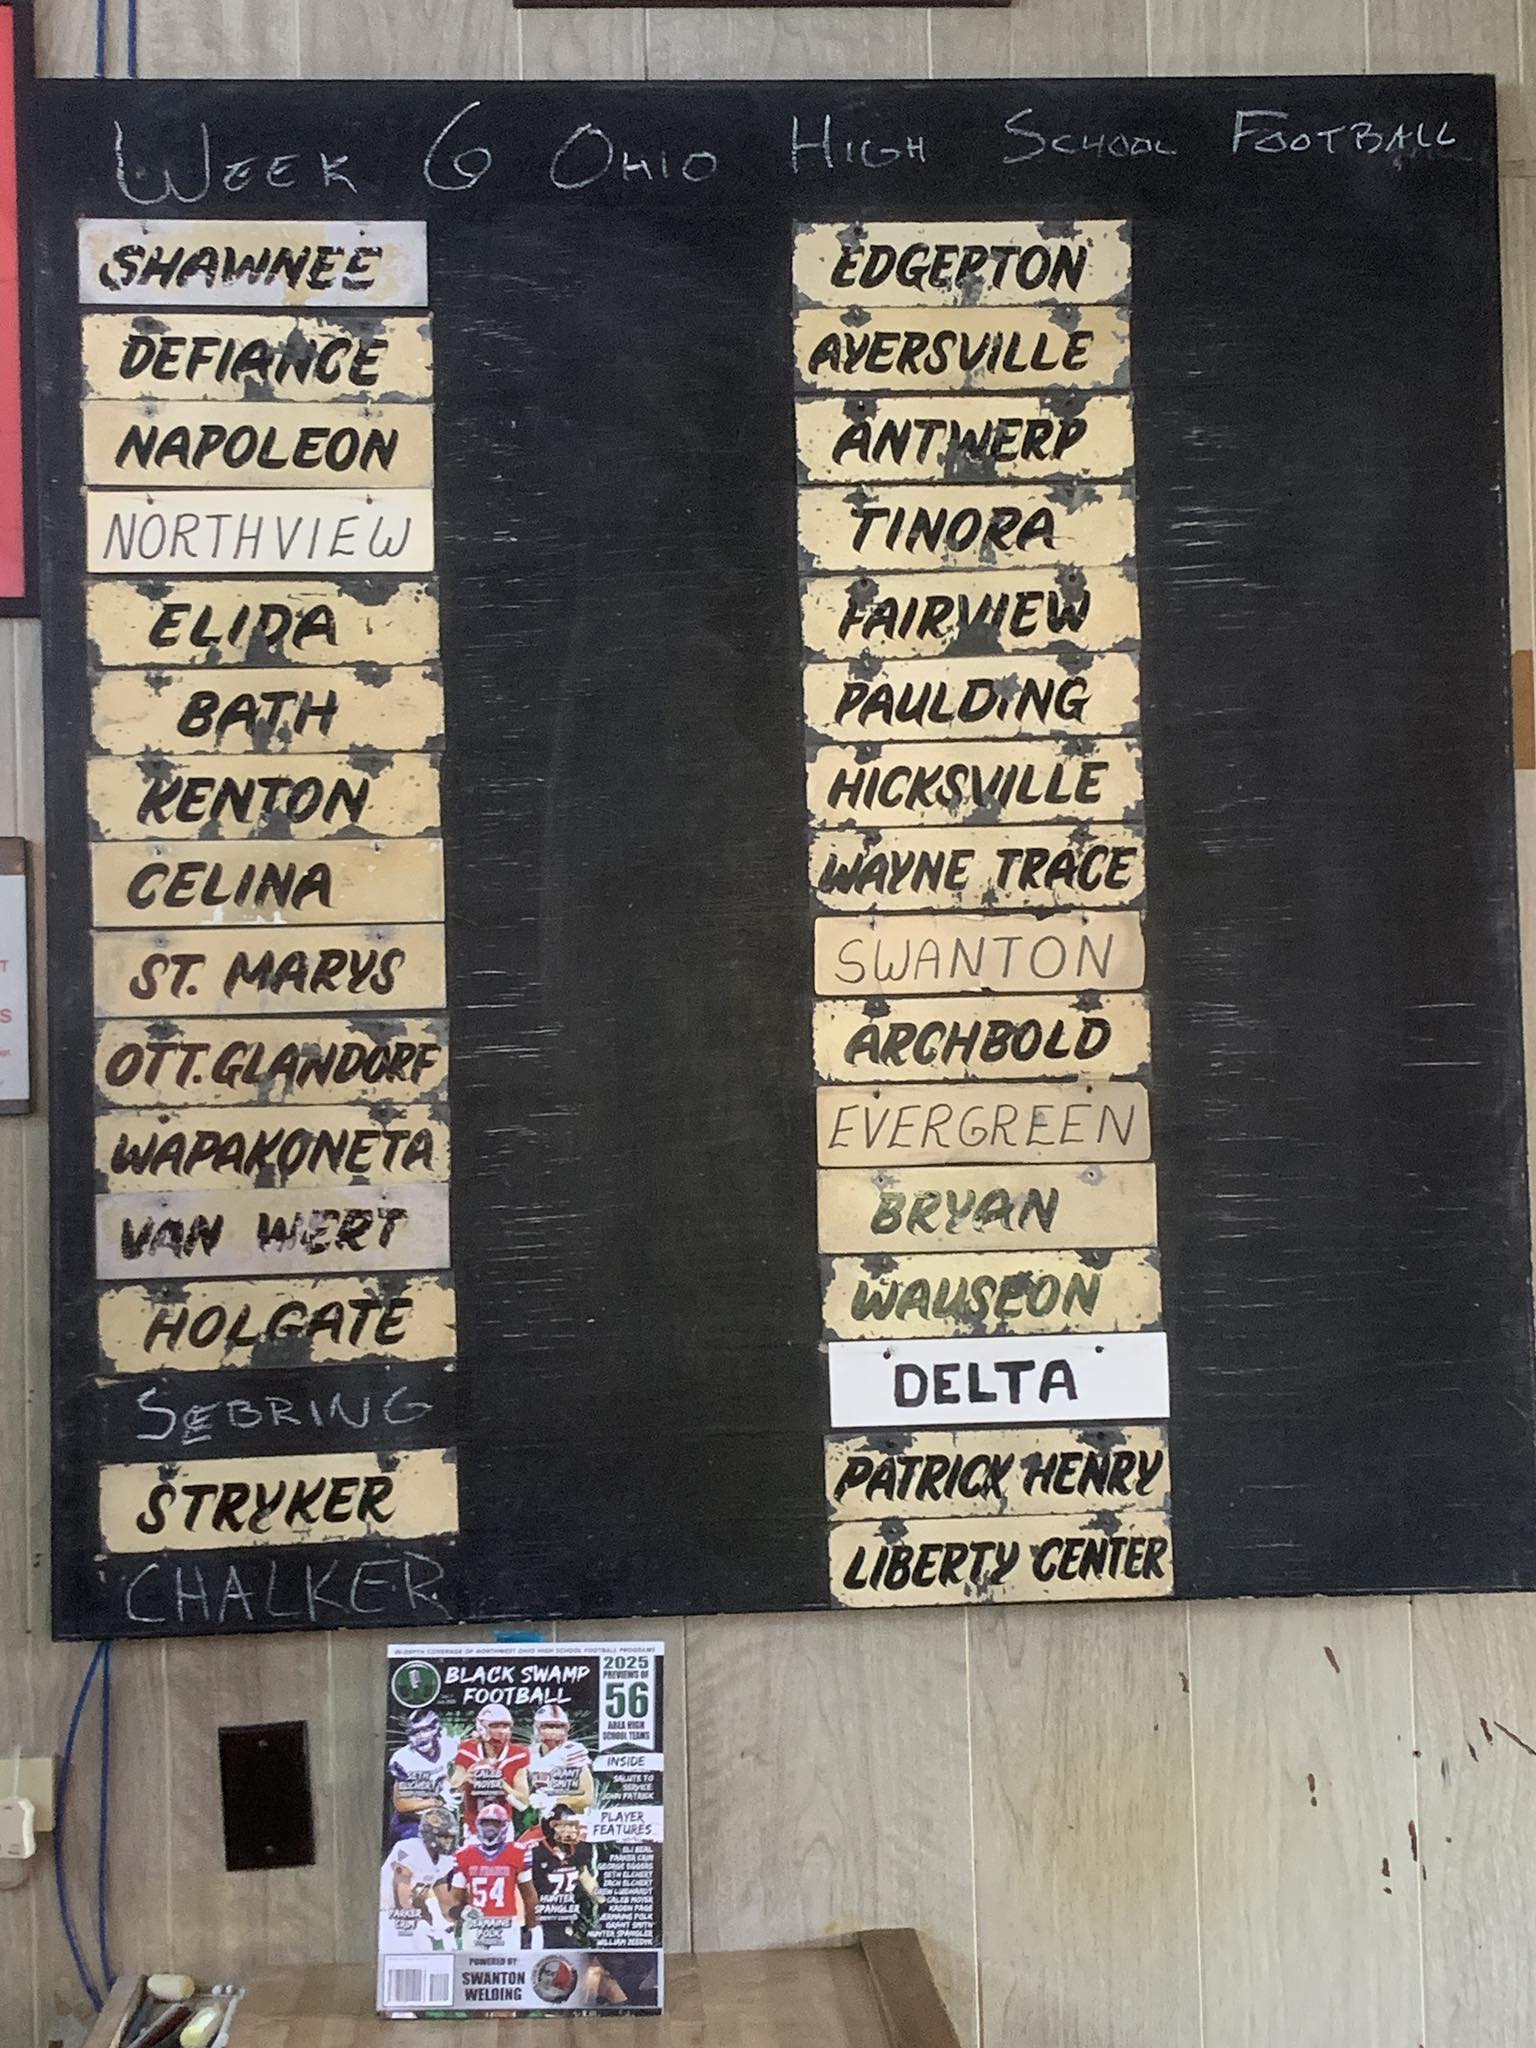 WEEK 6 OHIO HIGH SCHOOL FOOTBALL
SHAWNEE
DEFIANCE
NAPOLEON
NORTHVIEW
ELIDA
BATH
KENTON
CELINA
ST. MARYS
OTT. GLANDORF
WAPAKONETA
VAN WERT
HOLGATE
SEBRING
STRYKER
CHALKER
EDGERTON
AYERSVILLE
ANTWERP
TINORA
FAIRVIEW
PAULDING
HICKSVILLE
WAYNE TRACE
SWANTON
ARCHBOLD
EVERGREEN
BRYAN
WAUSEON
DELTA
PATRICK HENRY
LIBERTY CENTER
IN-DEPTH COVERAGE OF NORTHWEST OHIO HIGH SCHOOL FOOTBALL PROGRAMS
BLACK SWAMP
FOOTBALL
2025
PREVIEWS OF
56
AREA HIGH
SCHOOL TEAMS
INSIDE
SALUTE TO
SERVICE:
JOHN PATRICK
PLAYER
FEATURES
ELI BEAL
PARKER CRIM
GEORGE EGGERS
SETH ELCHERT
ZACH ELCHERT
CALEB MOYER
KADEN PAGE
JERMAINE POLK
GRANT SMITH
HUNTER SPANGLER
WILLIAM ZEEDYK
SETH
ELCHERT
CALEB
MOYER
GRANT
SMITH
PARKER
CRIM
ST. FRANCIS
54
JERMAINE
POLK
75
HUNTER
SPANGLER
LIBERTY CENTER
POWERED BY:
SWANTON
WELDING
T
S